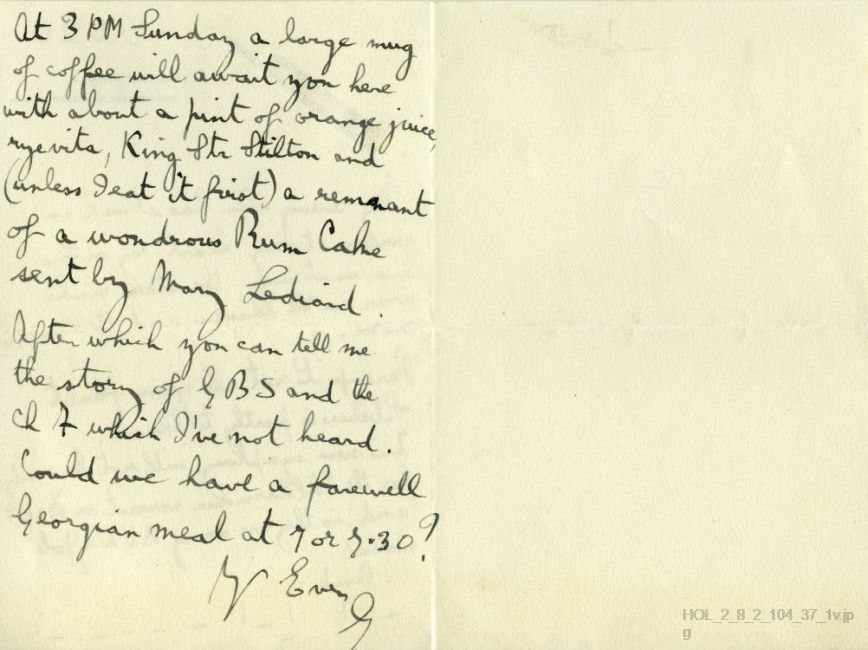 At 3 PM Sunday a large mug
of coffee will await you here
with about a pint of orange juice,
ryevita, King Str Stilton and
(unless I eat it first) a remnant
of a wondrous Rum Cake
sent by Mary Lediard.
After which you can tell me
the story of G B S and the
which I've not heard.
Could we have a farewell
Georgian meal at 7 or 7.30?
Yr Ever
G
HOL_2_8_2_104_37_1v.jp
g